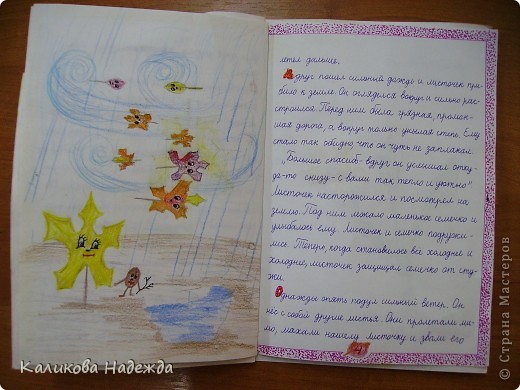 летел дальше.
Вдруг пошел сильный дождь и листочек при-
било к земле. Он огляделся вокруг и сильно рас-
строился. Перед ним была грязная, промок-
шая дорога, а вокруг только унылая степь. Ему
стало так обидно, что он чуть не заплакал.
„Большое спасибо - вдруг он услышал отку-
да-то снизу - с вами так тепло и уютно"
Листочек насторожился и посмотрел на
землю. Под ним лежало маленькое семечко и
улыбалось ему. Листочек и семечко подружи-
лись. Теперь, когда становилось все холоднее и
холоднее, листочек защищал семечко от сту-
жи.
Однажды опять подул сильный ветер. Он
нес с собой другие листья. Они пролетали ми-
мо, махали нашему листочку и звали его
4
Каликова Надежда
© Страна Мастеров